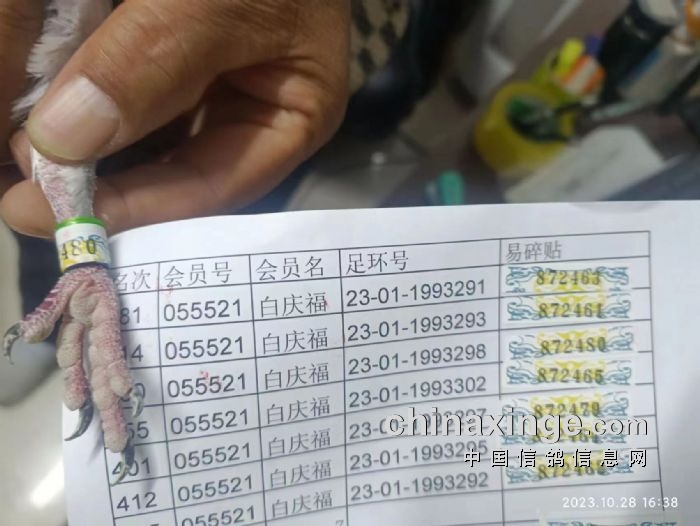 480
名次 会员号 会员名 足环号 易碎贴
81 055521 白庆福 23-01-1993291 872463
14 055521 白庆福 23-01-1993293 872461
0 055521 白庆福 23-01-1993298 872480
55 055521 白庆福 23-01-1993302 872465
401 055521 白庆福 872479
412 055521 白庆福 23-01-1993295
055521 白庆福 23-01-1993292
chinaxinge.com
中国信鸽信息网
2023.10.28 16:38